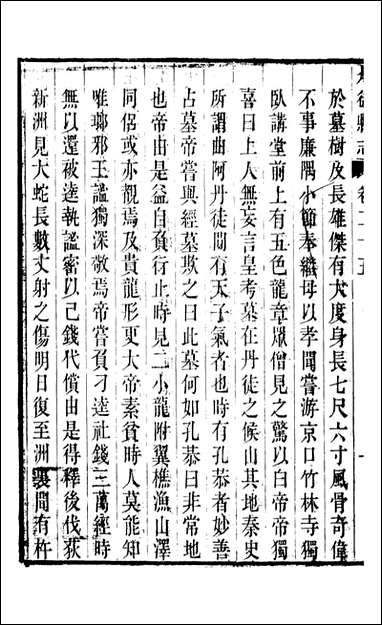 於墓樹及長雄傑有大度身長七尺六寸風骨奇偉
不事廉隅小節奉繼母以孝聞嘗游京口竹林寺獨
臥講堂前上有五色龍章眾僧見之驚以白帝帝獨
喜曰上人無妄言皇考墓在丹徒之候山其地秦史
所謂曲阿丹徒間有天子氣者也時有孔恭者妙善
占墓帝嘗與經墓欺之曰此墓何如孔恭曰非常地
也帝由是益自負行止時見二小龍附翼樵漁山澤
同侶或亦覩焉及貴龍形更大帝素貧時人莫能知
唯瑯邪王謐獨深敬焉帝嘗負刁逵社錢三萬經時
無以還被逵執謐密以己錢代償由是得釋後伐荻
新洲見大蛇長數丈射之傷明日復至洲裏聞有杵